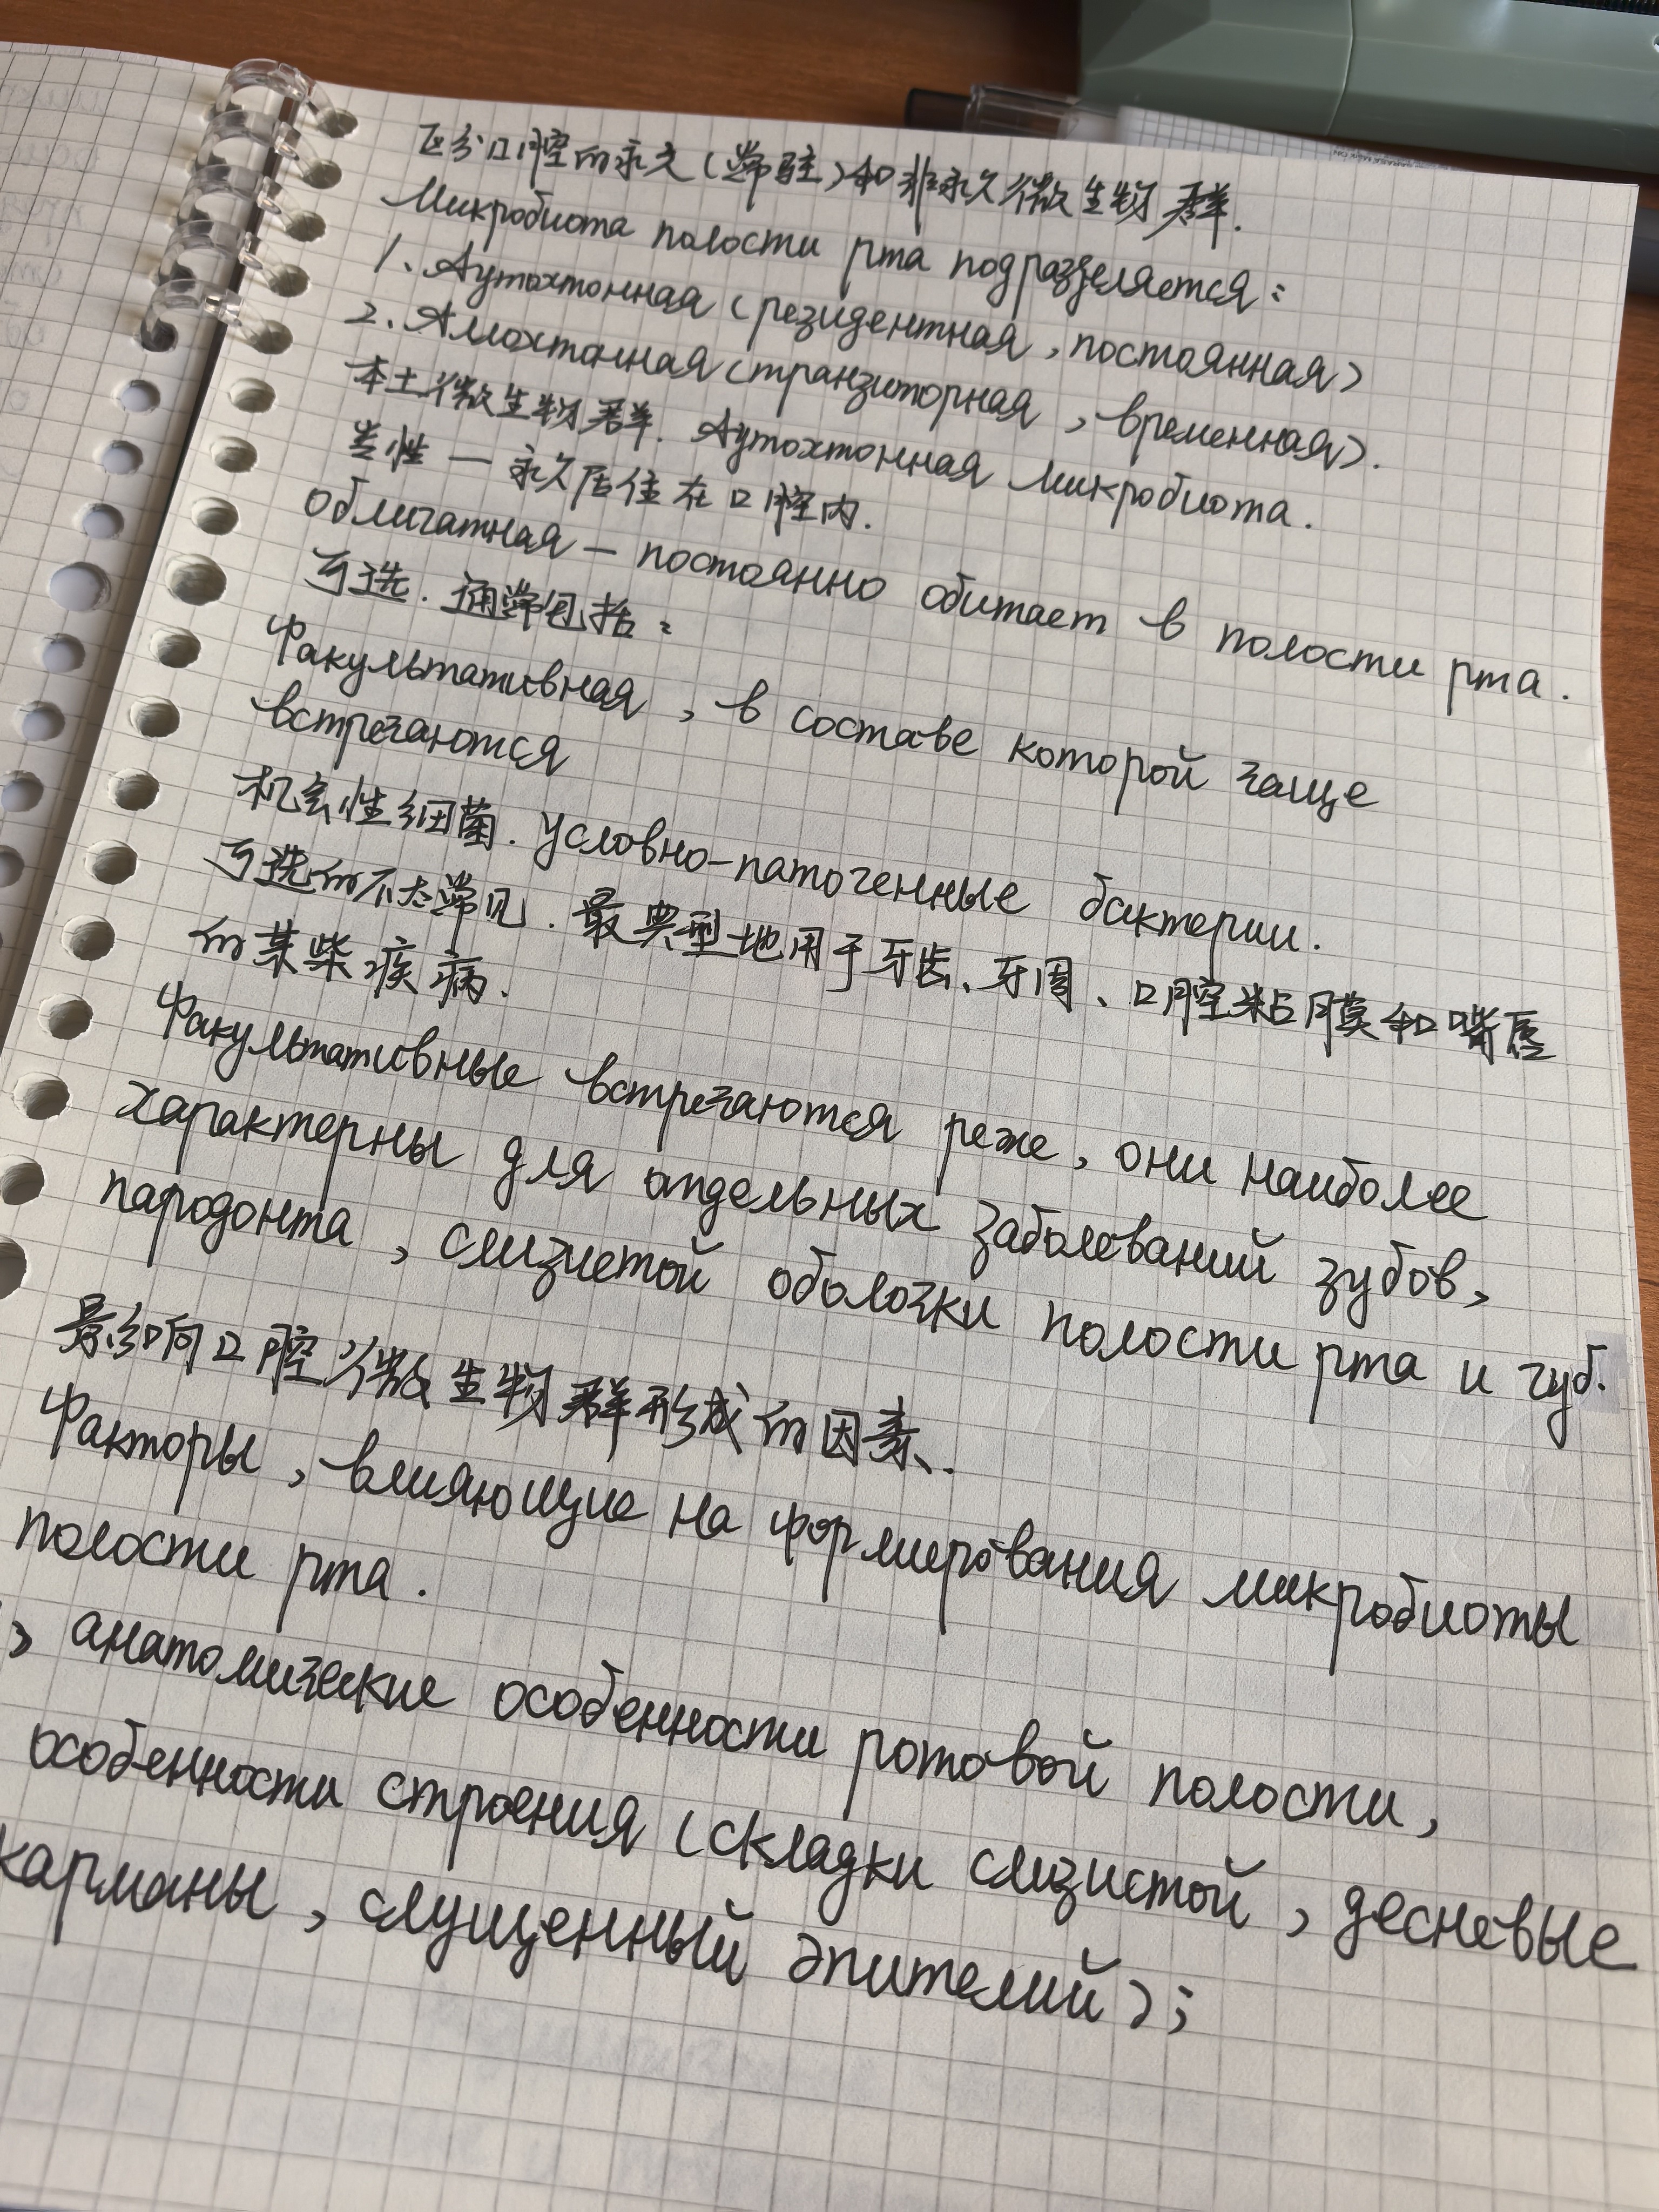 区分口腔的永久(常驻)和非永久微生物群.
Микробиота полости рта подразделяется:
1. Аутохтонная (резидентная, постоянная)
2. Аллохтонная (транзиторная, временная).
本土微生物群. Аутохтонная микробиота.
专性 — 永久居住在口腔内.
Облигатная — постоянно обитает в полости рта.
可选. 通常包括:
Факультативная, в составе которой чаще
встречаются
机会性细菌. Условно-патогенные бактерии.
可选的不太常见. 最典型地用于牙齿、牙周、口腔粘膜和嘴唇
的某些疾病.
Факультативные встречаются реже, они наиболее
характерны для отдельных заболеваний зубов,
пародонта, слизистой оболочки полости рта и губ.
影响口腔微生物群形成的因素.
Факторы, влияющие на формирования микробиоты
полости рта.
анатомические особенности ротовой полости,
особенности строения (складки слизистой, десневые
карманы, слущенный эпителий);